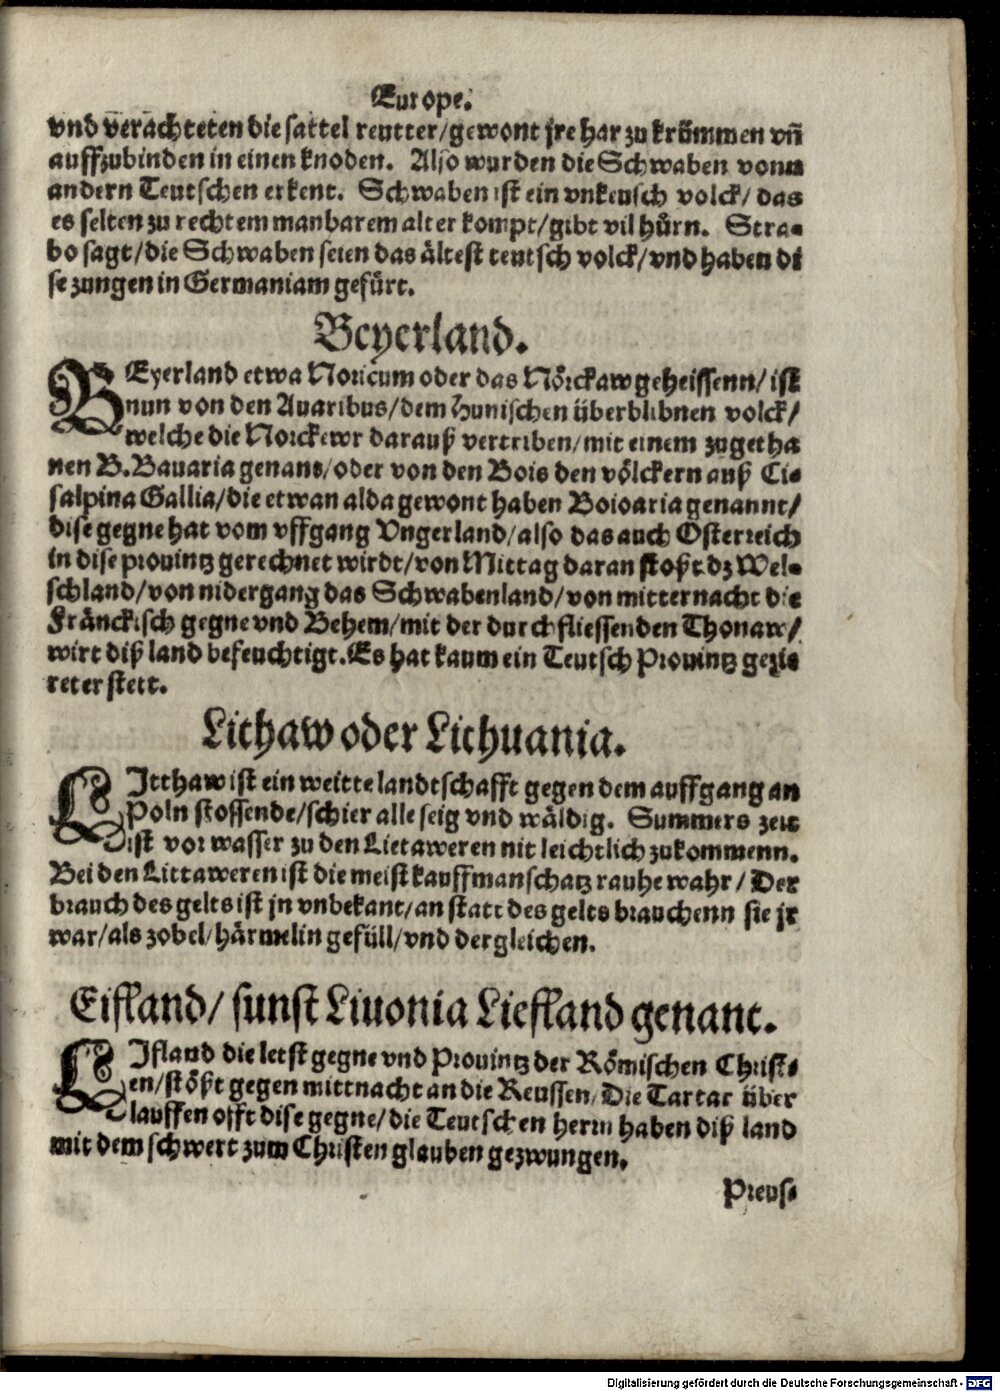 Europe.
vnd verachteten die sattel reutter/gewont jre har zu krümmen vñ
auffzubinden in einen knoden. Also wurden die Schwaben vonn
andern Teutschen erkent. Schwaben ist ein vnkeusch volck/ das
es selten zu rechtem manbarem alter kompt/gibt vil hůrn. Stra-
bo sagt/die Schwaben seien das ältest teutsch volck/vnd haben di
se zungen in Germaniam gefürt.
Beyerland.
BEyerland etwa Noricum oder das Nörckaw geheissenn/ ist
nun von den Auaribus/dem Hunischen überblibnen volck/
welche die Norckewr darauß vertriben/mit einem zugetha
nen B. Bauaria genant/oder von den Bois den völckern auß Ci-
salpina Gallia/die etwan alda gewont haben Boioaria genannt/
dise gegne hat vom vffgang Vngerland/also das auch Osterreich
in dise prouintz gerechnet wirdt/von Mittag daran stoßt dz Wel-
schland/von nidergang das Schwabenland/von mitternacht die
Fränckisch gegne vnd Behem/mit der durchfliessenden Thonaw/
wirt diß land befeuchtigt. Es hat kaum ein Teutsch Prouintz gezie
reter stett.
Lithaw oder Lithuania.
LItthaw ist ein weitte landtschafft gegen dem auffgang an
Poln stossende/schier alle seig vnd wäldig. Summers zeit
ist vor wasser zu den Lietaweren nit leichtlich zukommenn.
Bei den Littaweren ist die meist kauffmanschatz rauhe wahr/ Der
brauch des gelts ist jn vnbekant/an statt des gelts brauchenn sie jr
war/als zobel/härmelin gefüll/vnd dergleichen.
Eifland/ sunst Liuonia Liefland genant.
LIfland die letst gegne vnd Prouintz der Römischen Christ-
en/stößt gegen mittnacht an die Reussen/ Die Tartar über
lauffen offt dise gegne/die Teutschen herrn haben diß land
mit dem schwert zum Christen glauben gezwungen.
Preus-
Digitalisierung gefördert durch die Deutsche Forschungsgemeinschaft - DFG